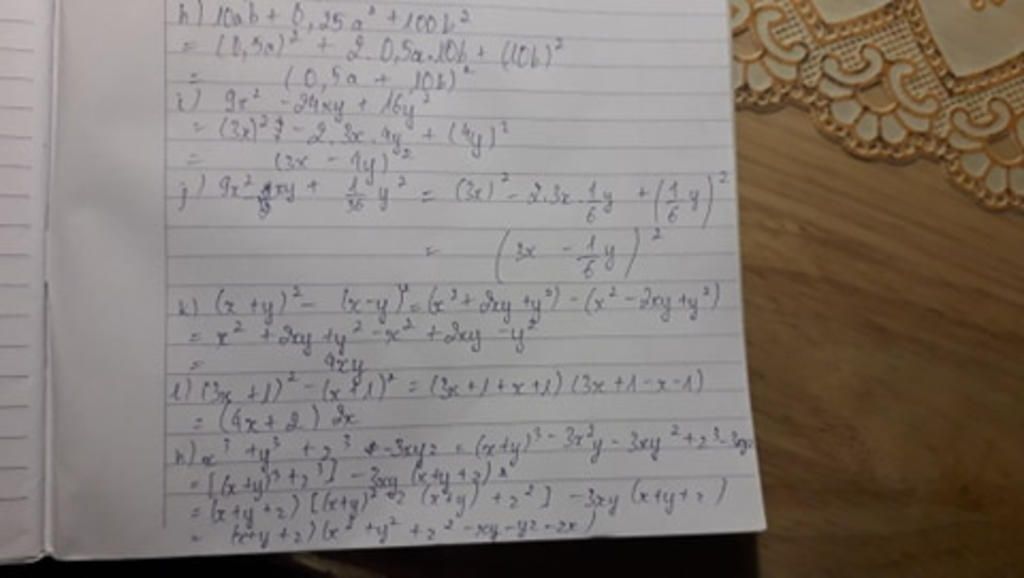 h) 10ab + 0,25a² + 100b²
= (0,5a)² + 2.0,5a.10b + (10b)²
= (0,5a + 10b)²
i) 9x² - 24xy + 16y²
= (3x)² - 2.3x.4y + (4y)²
= (3x - 4y)²
j) 9x² - xy + 1/36 y² = (3x)² - 2.3x.1/6y + (1/6y)²
= (3x - 1/6y)²
k) (x+y)² - (x-y)² = (x²+2xy+y²) - (x²-2xy+y²)
= x² + 2xy + y² - x² + 2xy - y²
= 4xy
l) (3x+1)² - (x+1)² = (3x+1+x+1) (3x+1-x-1)
= (4x+2) 2x
n) x³ + y³ + z³ - 3xyz = (x+y)³ - 3x²y - 3xy² + z³ - 3xyz
= [(x+y)³ + z³] - 3xy (x+y+z)
= (x+y+z) [(x+y)² - z (x+y) + z²] - 3xy (x+y+z)
= (x+y+z) (x² + y² + z² - xy - yz - zx)